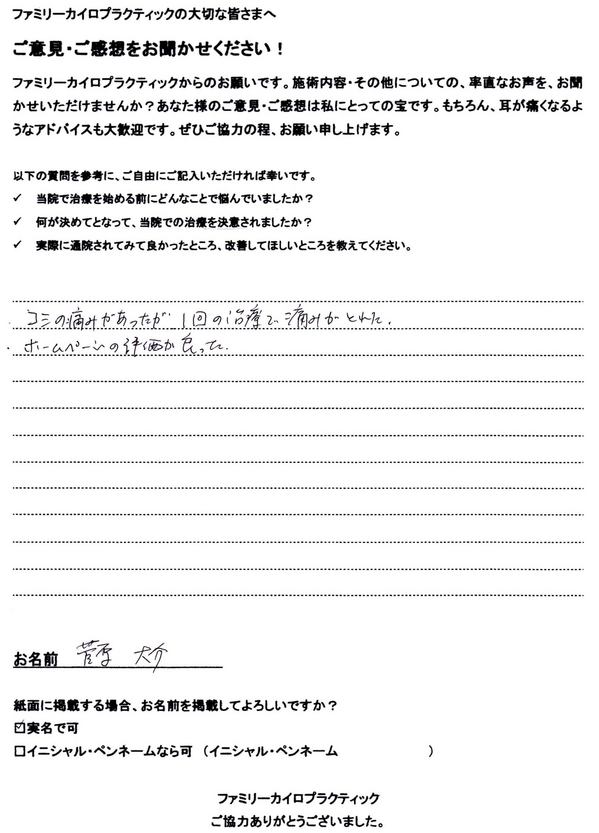 ファミリーカイロプラクティックの大切な皆さまへ
ご意見・ご感想をお聞かせください！
ファミリーカイロプラクティックからのお願いです。施術内容・その他についての、率直なお声を、お聞
かせいただけませんか？あなた様のご意見・ご感想は私にとっての宝です。もちろん、耳が痛くなるよ
うなアドバイスも大歓迎です。ぜひご協力の程、お願い申し上げます。
以下の質問を参考に、ご自由にご記入いただければ幸いです。
✓ 当院で治療を始める前にどんなことで悩んでいましたか？
✓ 何が決めてとなって、当院での治療を決意されましたか？
✓ 実際に通院されてみて良かったところ、改善してほしいところを教えてください。
・コシの痛みがあったが 1回の治療で痛みがとれた.
・ホームページの評価が良った.
お名前 菅原 大介
紙面に掲載する場合、お名前を掲載してよろしいですか？
☑実名で可
□イニシャル・ペンネームなら可 （イニシャル・ペンネーム ）
ファミリーカイロプラクティック
ご協力ありがとうございました。